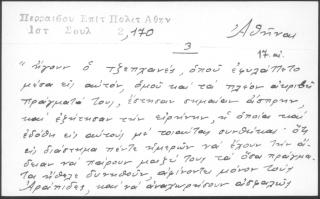 Περραιβου Επιτ Πολιτ Αθην
Ιστ Σουλ 2,170
Ἀθῆναι
3
17. αἰ.
"ἤγουν ὁ τζεπχανές, ὁποῦ ἐφυλάττετο
μέσα εἰς αὐτόν, ὁμοῦ καὶ τὰ πλέον ἀκριβῆ
πράγματά τους, ἔστησαν σημαίαν ἄσπρην,
καὶ ἐζήτησαν τὴν εἰρήνην, ἡ ὁποία καὶ
ἐδόθη εἰς αὐτούς μὲ τοιαύτας συνθήκας· ὅτι
εἰς διάστημα πέντε ἡμερῶν νὰ ἔχουν τὴν ἄ-
δειαν νὰ παίρουν μαζί τους τὰ ὅσα πράγμα-
τα ἤθελε δυνηθοῦν, ἀφίνοντες μόνον τοὺς
Ἀράπιδες, καὶ νὰ ἀναχωρήσουν ἀσφαλῶς